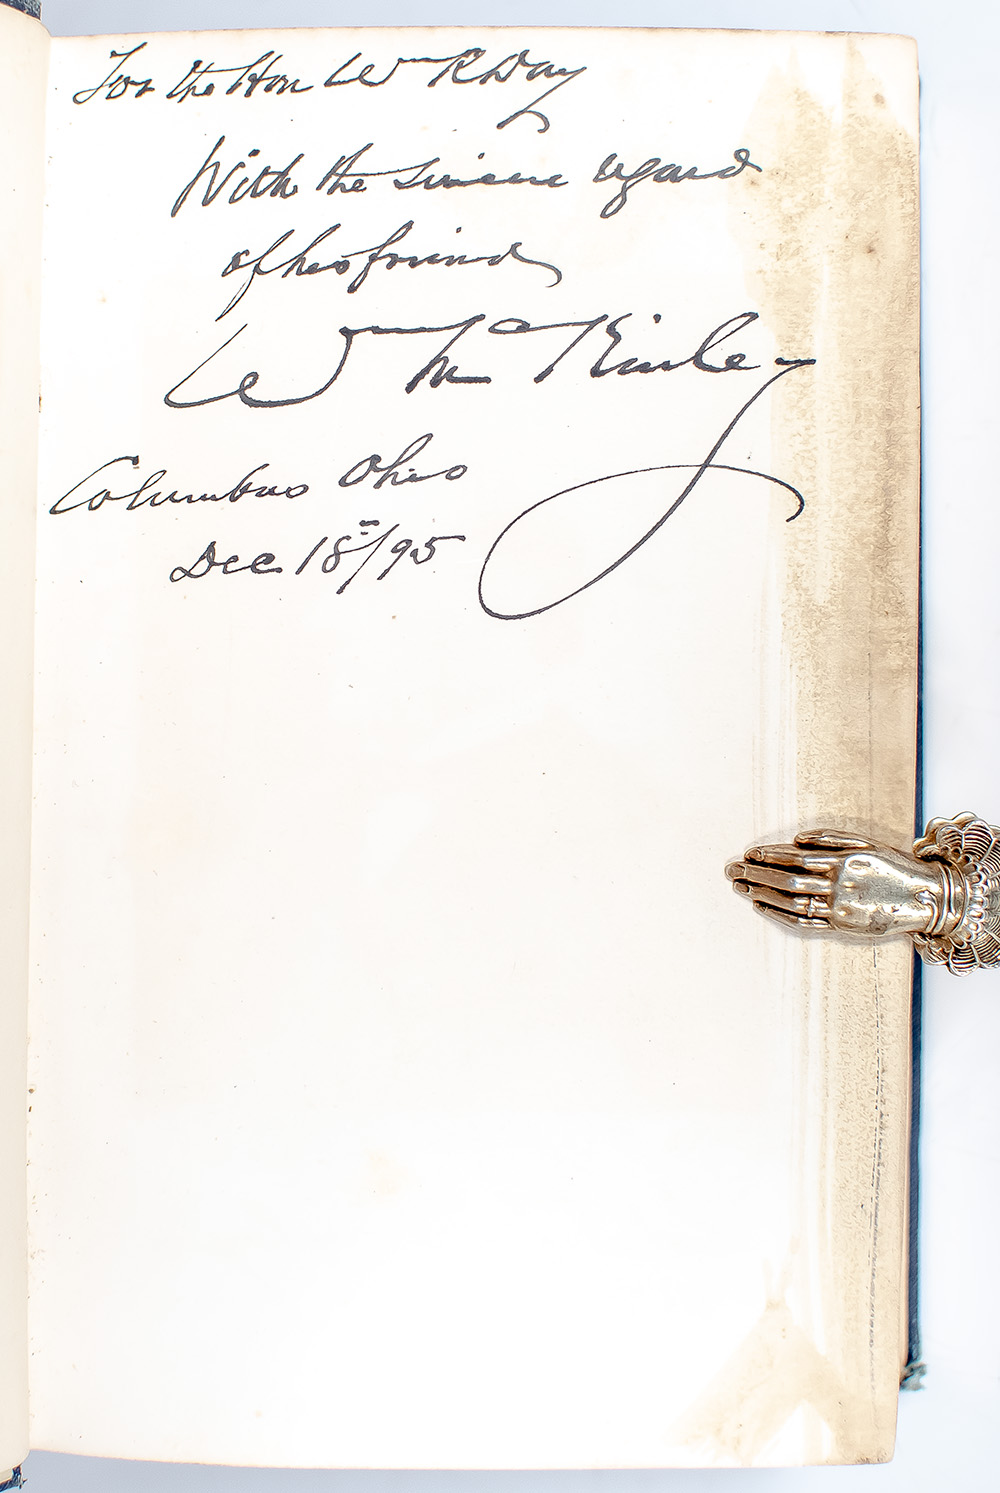 For the Hon Wm R Day
With the sincere regard
of his friend
Wm McKinley
Columbus Ohio
Dec 18"/95